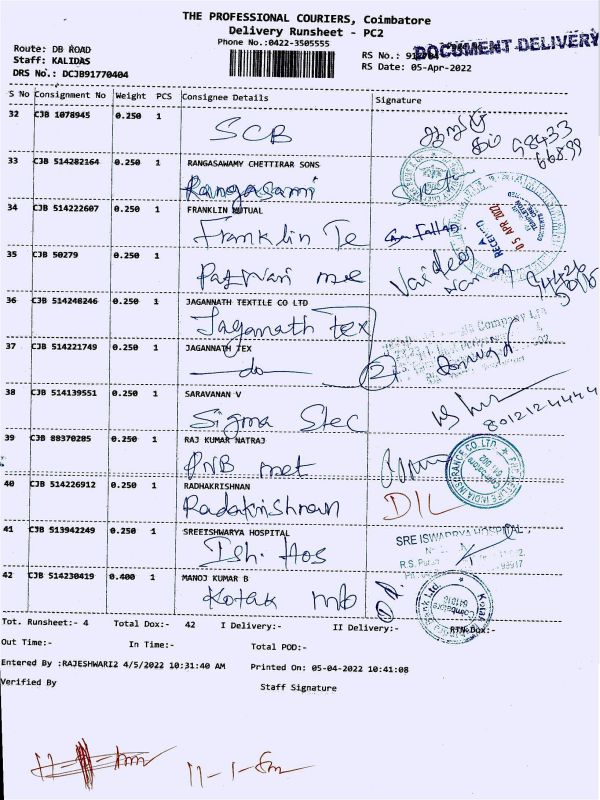 THE PROFESSIONAL COURIERS, Coimbatore
Delivery Runsheet - PC2
Phone No.:0422-3505555
DOCUMENT DELIVERY
Route: DB ROAD
Staff: KALIDAS
DRS No.: DCJB91770404
RS No.:
RS Date: 05-Apr-2022
S No Consignment No Weight PCS Consignee Details Signature
32 CJB 1078945 0.250 1
SCB
98433
66899
33 CJB 514282164 0.250 1 RANGASAWAMY CHETTIRAR SONS
Rangasami
34 CJB 514222607 0.250 1 FRANKLIN MUTUAL
Franklin Te
05 APR 2022
35 CJB 50279 0.250 1
36 CJB 514248246 0.250 1 JAGANNATH TEXTILE CO LTD
Jaganath Tex
37 CJB 514221749 0.250 1 JAGANNATH TEX
do
2
38 CJB 514139551 0.250 1 SARAVANAN V
Sigma Stec
8012124444
39 CJB 88370285 0.250 1 RAJ KUMAR NATRAJ
PNB met
40 CJB 514226912 0.250 1 RADHAKRISHNAN
Radakrishnan
DIL
41 CJB 513942249 0.250 1 SREEISHWARYA HOSPITAL
Ish. Hos
SRE ISWARYA HOSPITAL
42 CJB 514230419 0.400 1 MANOJ KUMAR B
Kotak
Tot. Runsheet:- 4 Total Dox:- 42 I Delivery:- II Delivery:- RTN Dox:-
Out Time:- In Time:- Total POD:-
Entered By :RAJESHWARI2 4/5/2022 10:31:40 AM Printed On: 05-04-2022 10:41:08
Verified By Staff Signature